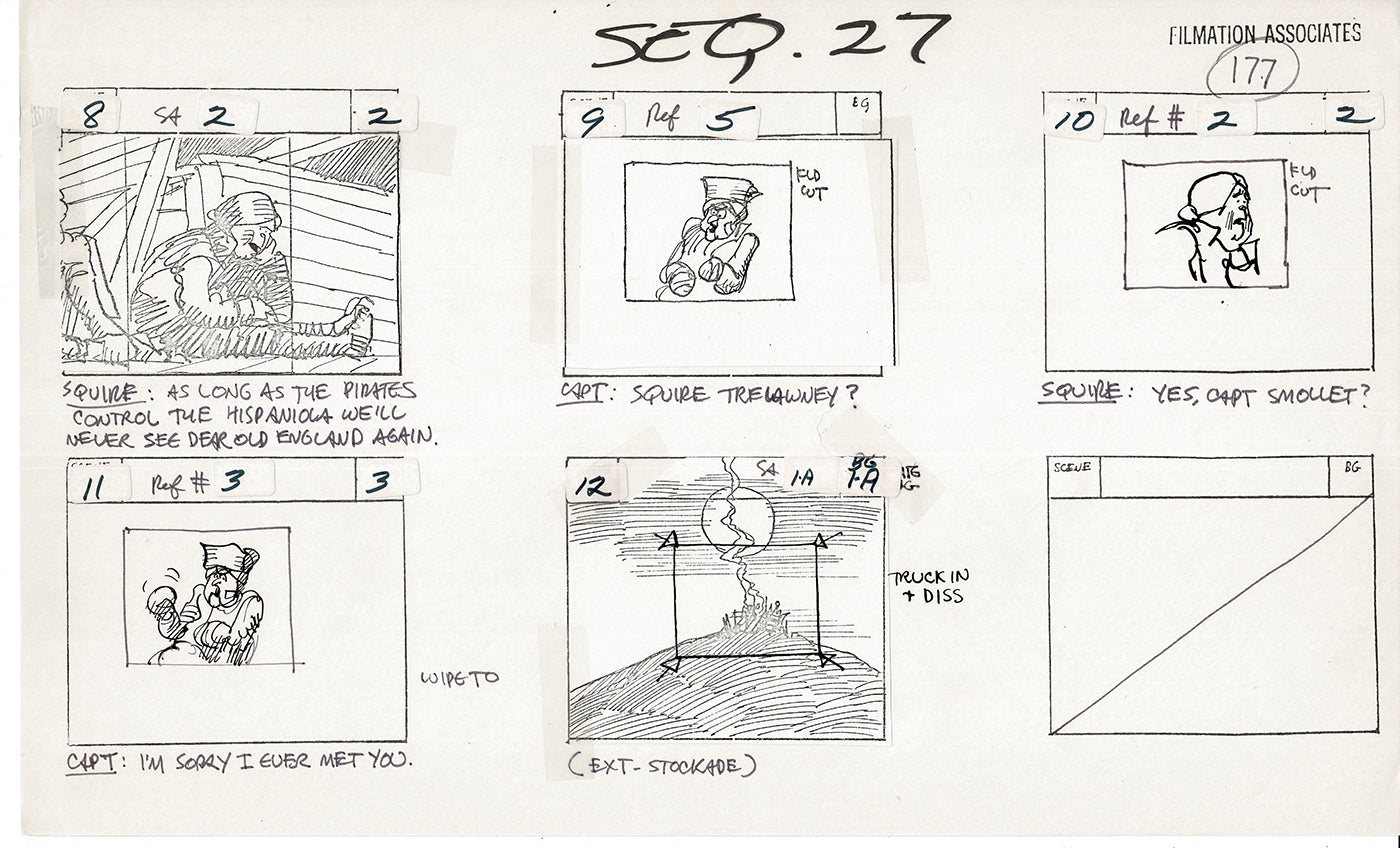 SEQ. 27
FILMATION ASSOCIATES
177
8 SA 2 2
SQUIRE: AS LONG AS THE PIRATES
CONTROL THE HISPANIOLA WE'LL
NEVER SEE DEAR OLD ENGLAND AGAIN.
9 Ref 5 BG
FLD
CUT
CAPT: SQUIRE TRELAWNEY?
10 Ref # 2 2
FLD
CUT
SQUIRE: YES, CAPT SMOLLET?
11 Ref # 3 3
WIPE TO
CAPT: I'M SORRY I EVER MET YOU.
12 SA 1-A BG
1-A
TRUCK IN
+ DISS
(EXT-STOCKADE)
SCENE BG